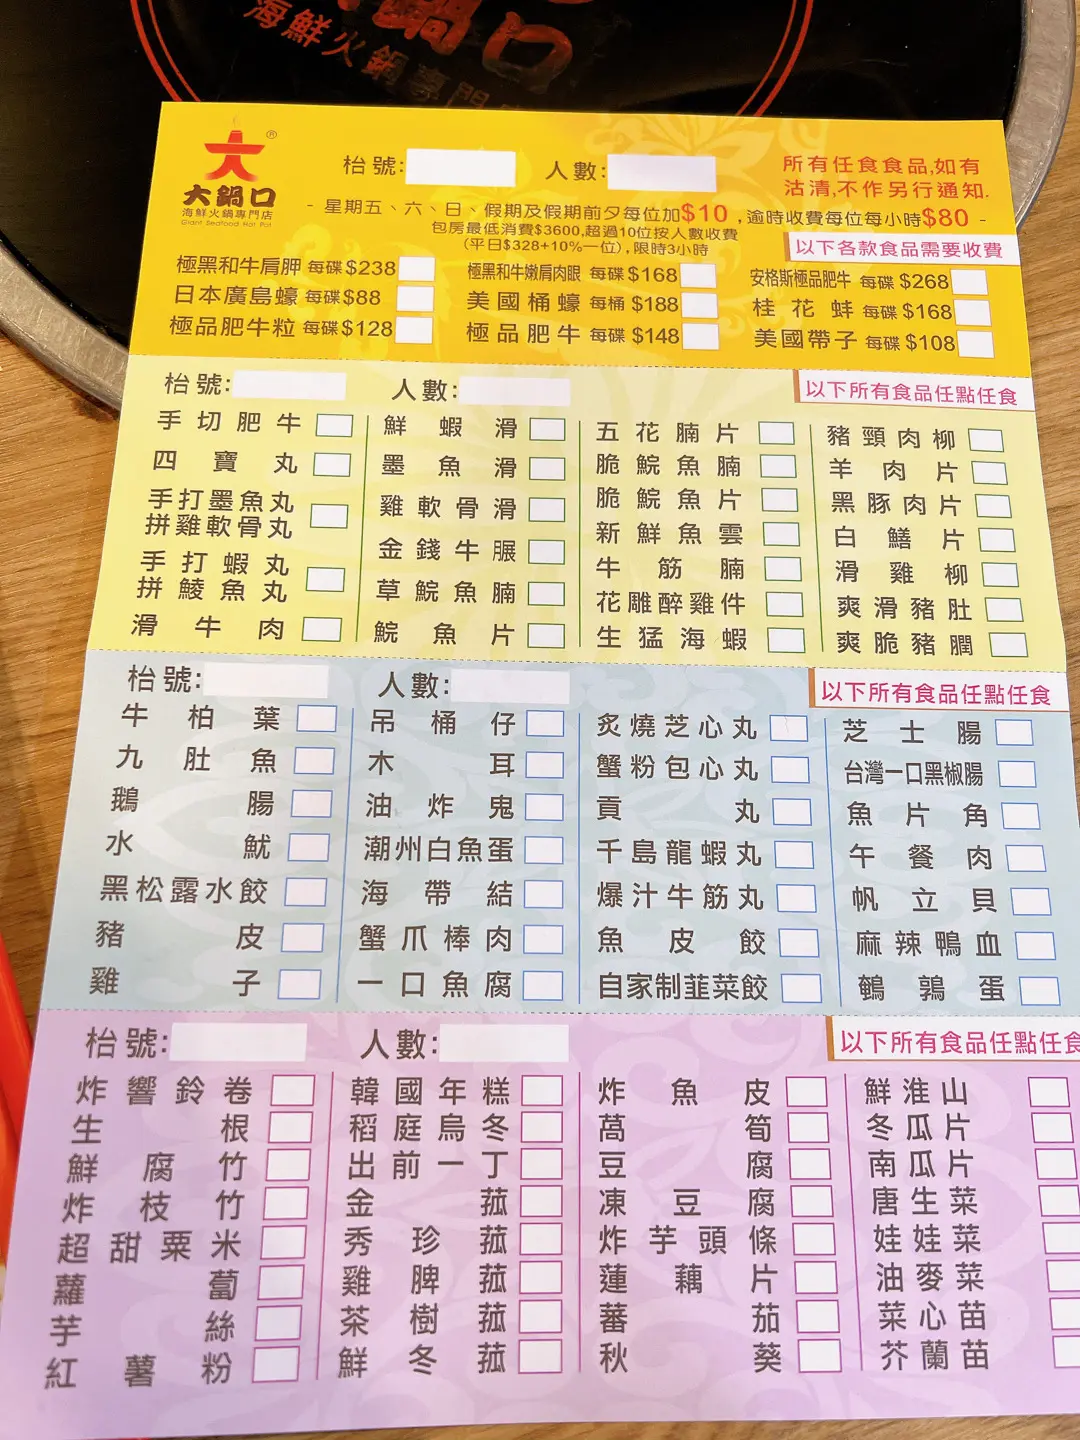 鍋口
海鮮火鍋專門
大鍋口
海鮮火鍋專門店
Giant Seafood Hot Pot
枱號: 人數:
所有任食食品,如有
沽清,不作另行通知.
- 星期五、六、日、假期及假期前夕每位加$10 ,逾時收費每位每小時$80 -
包房最低消費$3600,超過10位按人數收費
(平日$328+10%一位), 限時3小時
以下各款食品需要收費
極黑和牛肩胛 每碟$238 極黑和牛嫩肩肉眼 每碟$168 安格斯極品肥牛 每碟$268
日本廣島蠔 每碟$88 美國桶蠔 每桶$188 桂花蚌 每碟$168
極品肥牛粒 每碟$128 極品肥牛 每碟$148 美國帶子 每碟$108
枱號: 人數: 以下所有食品任點任食
手切肥牛
四寶丸
手打墨魚丸
拼雞軟骨丸
手打蝦丸
拼鯪魚丸
滑牛肉
鮮蝦滑
墨魚滑
雞軟骨滑
金錢牛𦟌
草鯇魚腩
鯇魚片
五花腩片
脆鯇魚腩
脆鯇魚片
新鮮魚雲
牛筋腩
花雕醉雞件
生猛海蝦
豬頸肉柳
羊肉片
黑豚肉片
白鱔片
滑雞柳
爽滑豬肚
爽脆豬膶
枱號: 人數: 以下所有食品任點任食
牛柏葉
九肚魚
鵝腸
水魷
黑松露水餃
豬皮
雞子
吊桶仔
木耳
油炸鬼
潮州白魚蛋
海帶結
蟹爪棒肉
一口魚腐
炙燒芝心丸
蟹粉包心丸
貢丸
千島龍蝦丸
爆汁牛筋丸
魚皮餃
自家制韮菜餃
芝士腸
台灣一口黑椒腸
魚片角
午餐肉
帆立貝
麻辣鴨血
鵪鶉蛋
枱號: 人數: 以下所有食品任點任食
炸響鈴卷
生根
鮮腐竹
炸枝竹
超甜粟米
蘿蔔
芋絲
紅薯粉
韓國年糕
稻庭烏冬
出前一丁
金菇
秀珍菇
雞脾菇
茶樹菇
鮮冬菇
炸魚皮
萵筍
豆腐
凍豆腐
炸芋頭條
蓮藕片
蕃茄
秋葵
鮮淮山
冬瓜片
南瓜片
唐生菜
娃娃菜
油麥菜
菜心苗
芥蘭苗